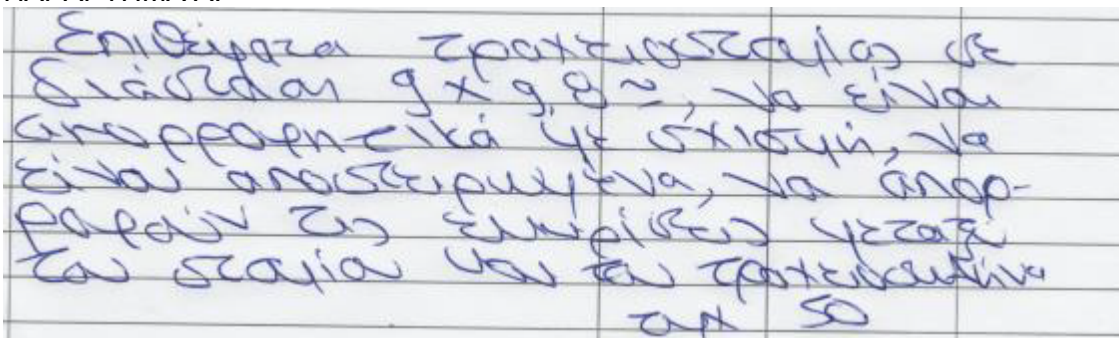 Επιθέματα τραχειοστομίας σε
διάσταση 9 x 9,8 ~, να είναι
απορροφητικά με σχισμή, να
είναι αποστειρωμένα, να απορ-
ροφούν τις εκκρίσεις μεταξύ
του στομίου και του τραχειοσωλήνα
τμχ 50